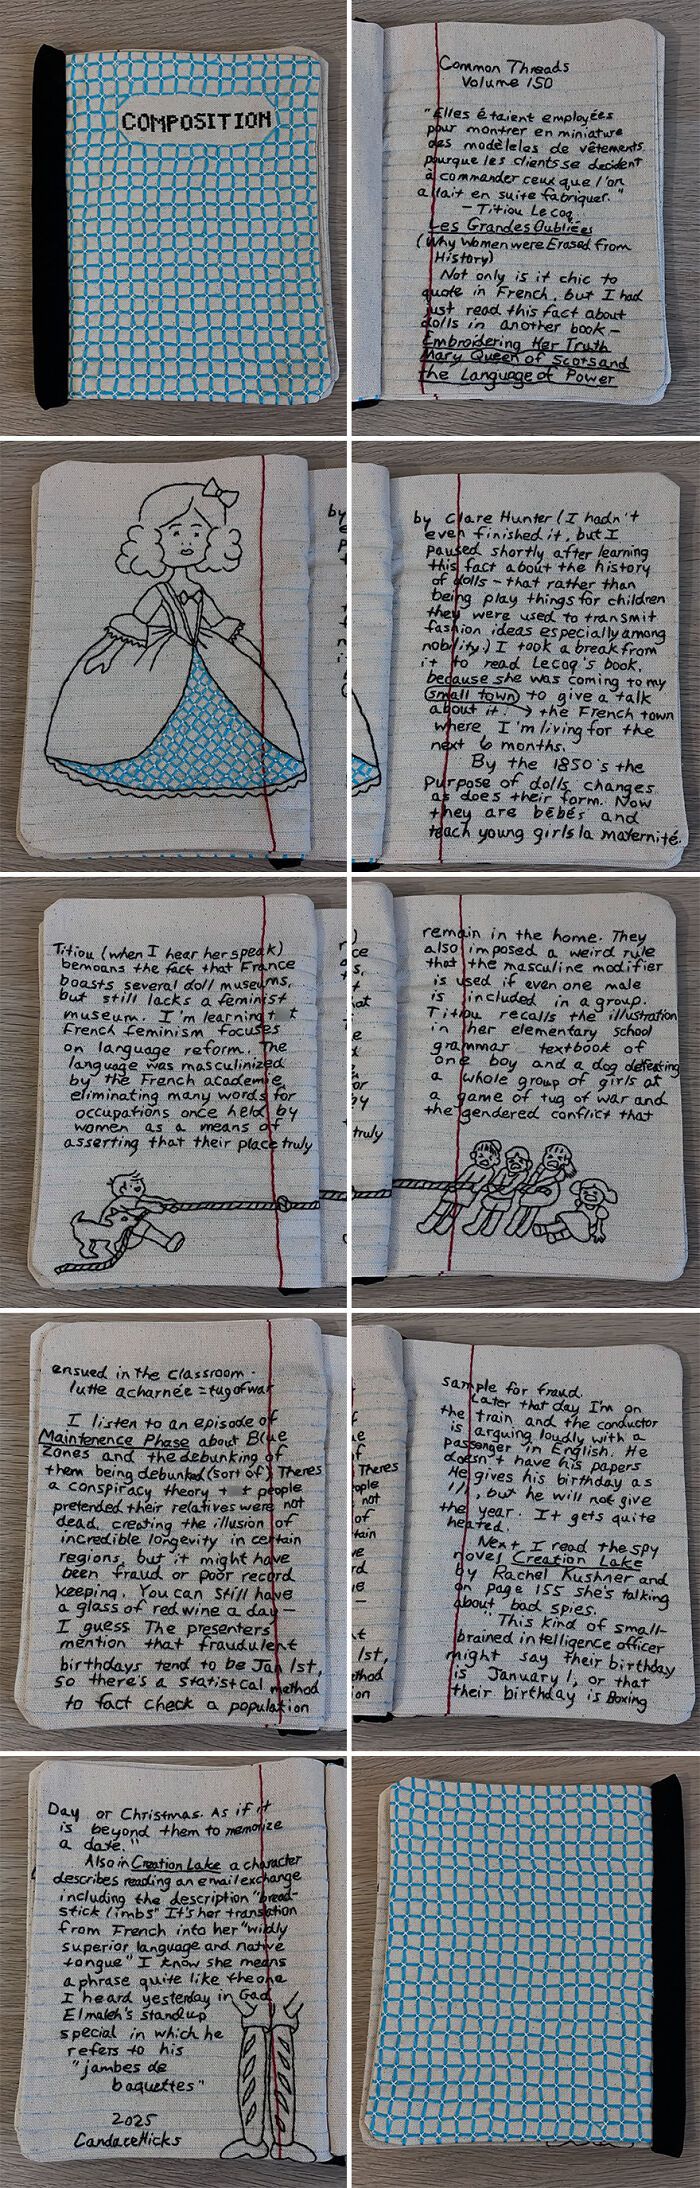 COMPOSITION
Common Threads
Volume 150
"Elles étaient employées
pour montrer en miniature
des modèleles de vêtements
pourque les clients se decident
à commander ceux que l'on
allait en suite fabriquer."
- Titiou Lecoq
Les Grandes Oubliées
(Why Women were Erased from
History)
Not only is it chic to
quote in French, but I had
just read this fact about
dolls in another book -
Embroidering Her Truth
Mary Queen of Scots and
the Language of Power
by Clare Hunter (I hadn't
even finished it, but I
paused shortly after learning
this fact about the history
of dolls - that rather than
being play things for children
they were used to transmit
fashion ideas especially among
nobility.) I took a break from
it to read Lecoq's book,
because she was coming to my
small town to give a talk
about it → the French town
where I'm living for the
next 6 months.
By the 1850's the
purpose of dolls changes
as does their form. Now
they are bébés and
teach young girls la maternité.
Titiou (when I hear her speak)
bemoans the fact that France
boasts several doll museums,
but still lacks a feminist
museum. I'm learning t t
French feminism focuses
on language reform. The
language was masculinized
by the French academie
eliminating many words for
occupations once held by
women as a means of
asserting that their place truly
remain in the home. They
also imposed a weird rule
that the masculine modifier
is used if even one male
is included in a group.
Titiou recalls the illustration
in her elementary school
grammar textbook of
one boy and a dog defeating
a whole group of girls at
a game of tug of war and
the gendered conflict that
ensued in the classroom.
lutte acharnée = tug of war
I listen to an episode of
Maintenence Phase about Blue
Zones and the debunking of
them being debunked (sort of) Theres
a conspiracy theory t t people
pretended their relatives were not
dead, creating the illusion of
incredible longevity in certain
regions, but it might have
been fraud or poor record
keeping. You can still have
a glass of red wine a day -
I guess The presenters
mention that fraudulent
birthdays tend to be Jan 1st,
so there's a statistcal method
to fact check a population
sample for fraud.
Later that day I'm on
the train and the conductor
is arguing loudly with a
passenger in English. He
doesn't have his papers
He gives his birthday as
1/1, but he will not give
the year. It gets quite
heated.
Next I read the spy
novel Creation Lake
by Rachel Kushner and
on page 155 she's talking
about bad spies.
"This kind of small-
brained intelligence officer
might say their birthday
is January 1, or that
their birthday is Boxing
Day or Christmas. As if it
is beyond them to memorize
a date."
Also in Creation Lake a character
describes reading an email exchange
including the description "bread-
stick limbs" It's her translation
from French into her "wildly
superior language and native
tongue" I know she means
a phrase quite like the one
I heard yesterday in Gad
Elmaleh's standup
special in which he
refers to his
"jambes de
baguettes"
2025
Candace Hicks